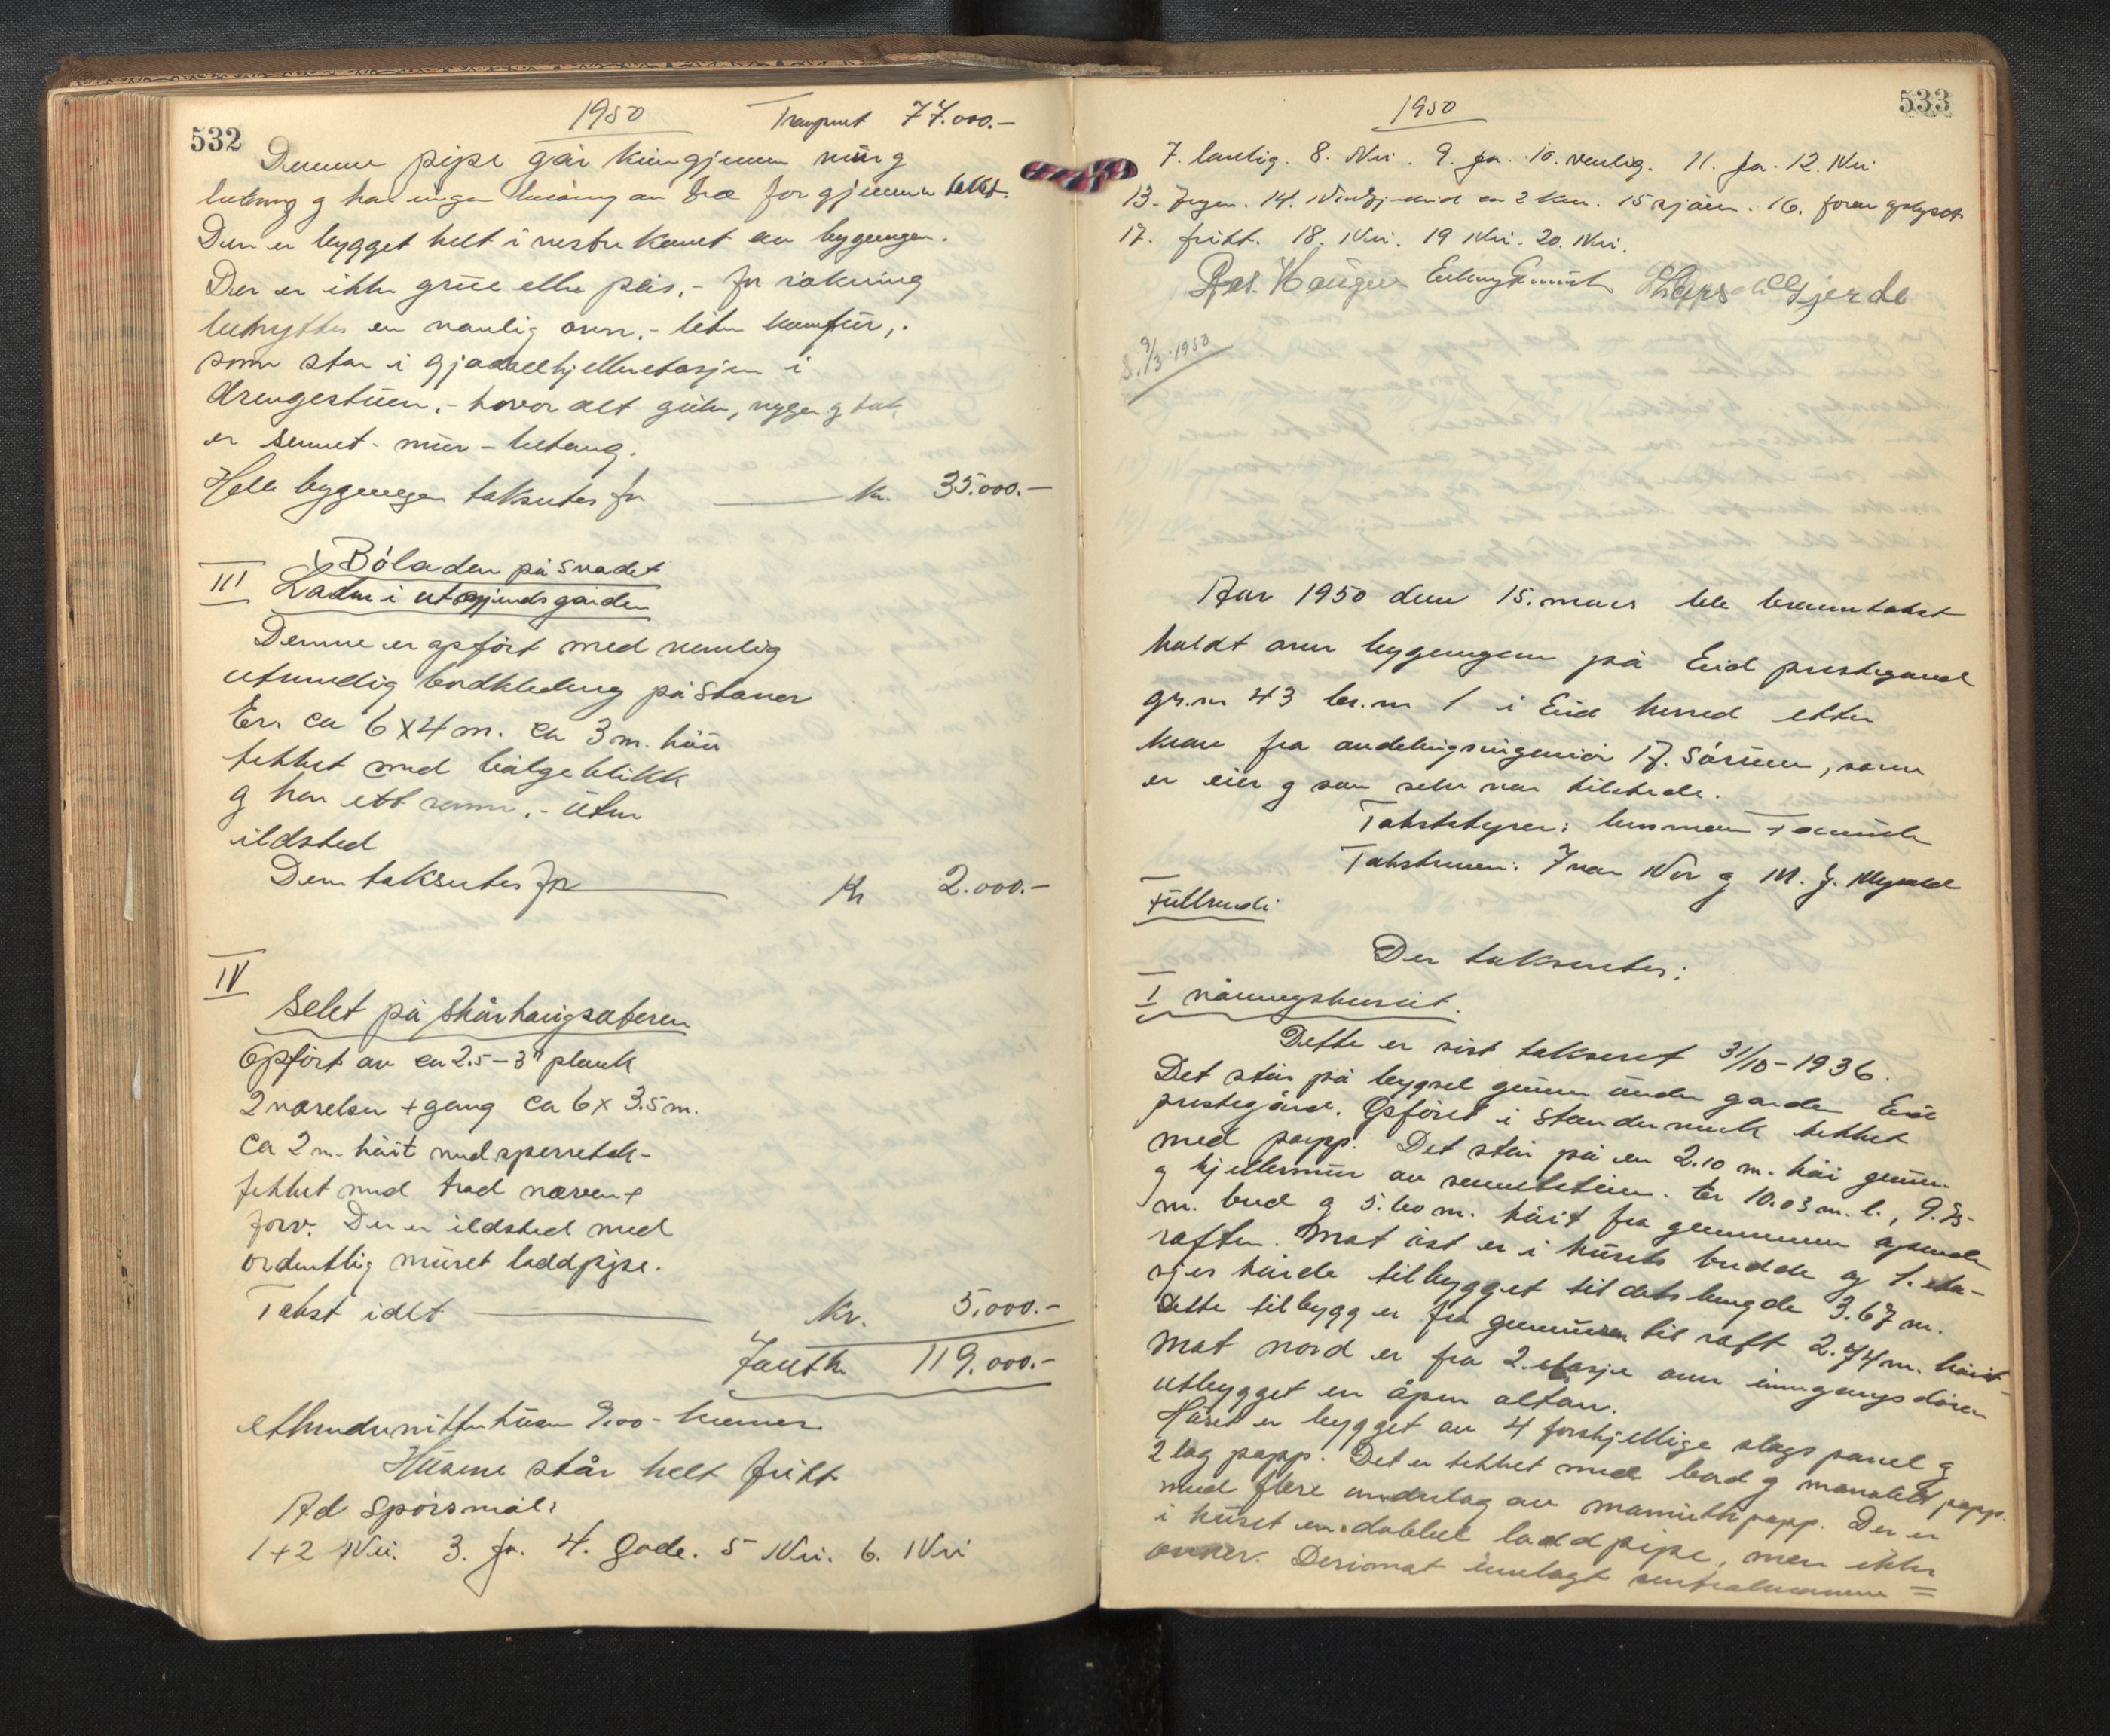 532
1950
Transport 77.000.-
Denne pipe går kun gjennem mur og
betong og har ingen berøring av træ for gjennem taket.
Den er bygget helt i vestre kant av bygningen.
Der er ikke grue eller peis, - for røkning
benyttes en vanlig ovn, - liten komfur,
som står i gjødselkjelleretasjen i
drengestuen, - hvor alt gulv, vegger og tak
er sement - mur - betong.
Hele bygningen takseres for kr. 35.000.-
Bøladen på Svadet
III Laden i utgjerdsgården
Denne er opført med vanlig
utvendig bordkledning på staver
Er ca 6 x 4 m. ca 3 m. høi
tekket med bølgeblikk
og har ett rum, - uten
ildsted
Den takseres for Kr 2.000.-
IV
Selet på Skårhaugsæteren
Opført av ca 2.5 - 3" plank
2 værelser + gang ca 6 x 3.5 m.
ca 2 m. høit med sperretak -
tekket med trod næver +
torv. Der er ildsted med
ordentlig muret loddpipe.
Takst idet kr. 5.000.-
119.000.-
etthundrenittentusen 9/00 - kroner
Husene står helt fritt
Ad spørsmål:
1+2 Nei. 3. Ja. 4. Gode. 5 Nei. 6. Nei
533
1950
7. lovlig. 8. Nei. 9. Ja. 10. vanlig. 11. Ja. 12. Nei
13. Ingen. 14. 2 km. 15 sjøen. 16. foran oplyst
17. fritt. 18. Nei. 19 Nei. 20. Nei.
Ras. Hauger Lars Gjerde
S. 9/3-1950
Aar 1950 den 15. mars ble branntakst
holdt over bygningen på Eid prestegard
gr.nr 43 br.nr 1 i Eid herred etter
krav fra avdelingsingeniør Sørum, som
er eier og som selv var tilstede.
Takststyrer: lensmann
Takstmenn: Ivar Nor og M. J. Myklebust
Fullendi
Der takseres:
I våningshuset.
Dette er sist taksert 31/10-1936.
Det står på bygsel grunn under garden Eid
prestegård. Opføret i stenderverk tekket
med papp. Det står på en 2.10 m. høi grunn
og kjellermur av sementstein. Er 10.03 m. l., 9.25
m. bred og 5.60 m. høit fra grunnmuren
raften. Mot øst er i husets bredde og 1. eta-
sjes høide tilbygget til dets lengde 3.67 m.
Dette tilbygg er fra grunnmuren til raft 2.74 m. høit -
Mot nord er fra 2. etasje over inngangsdøren
utbygget en åpen altan.
Huset er bygget av 4 forskjellige slags panel og
2 lag papp. Det er tekket med bord og papp.
med flere underlag av mammuthpapp. Der er
i huset en dobbel loddpipe, men ikke
ovner. Derimot innlagt sentralvarme =